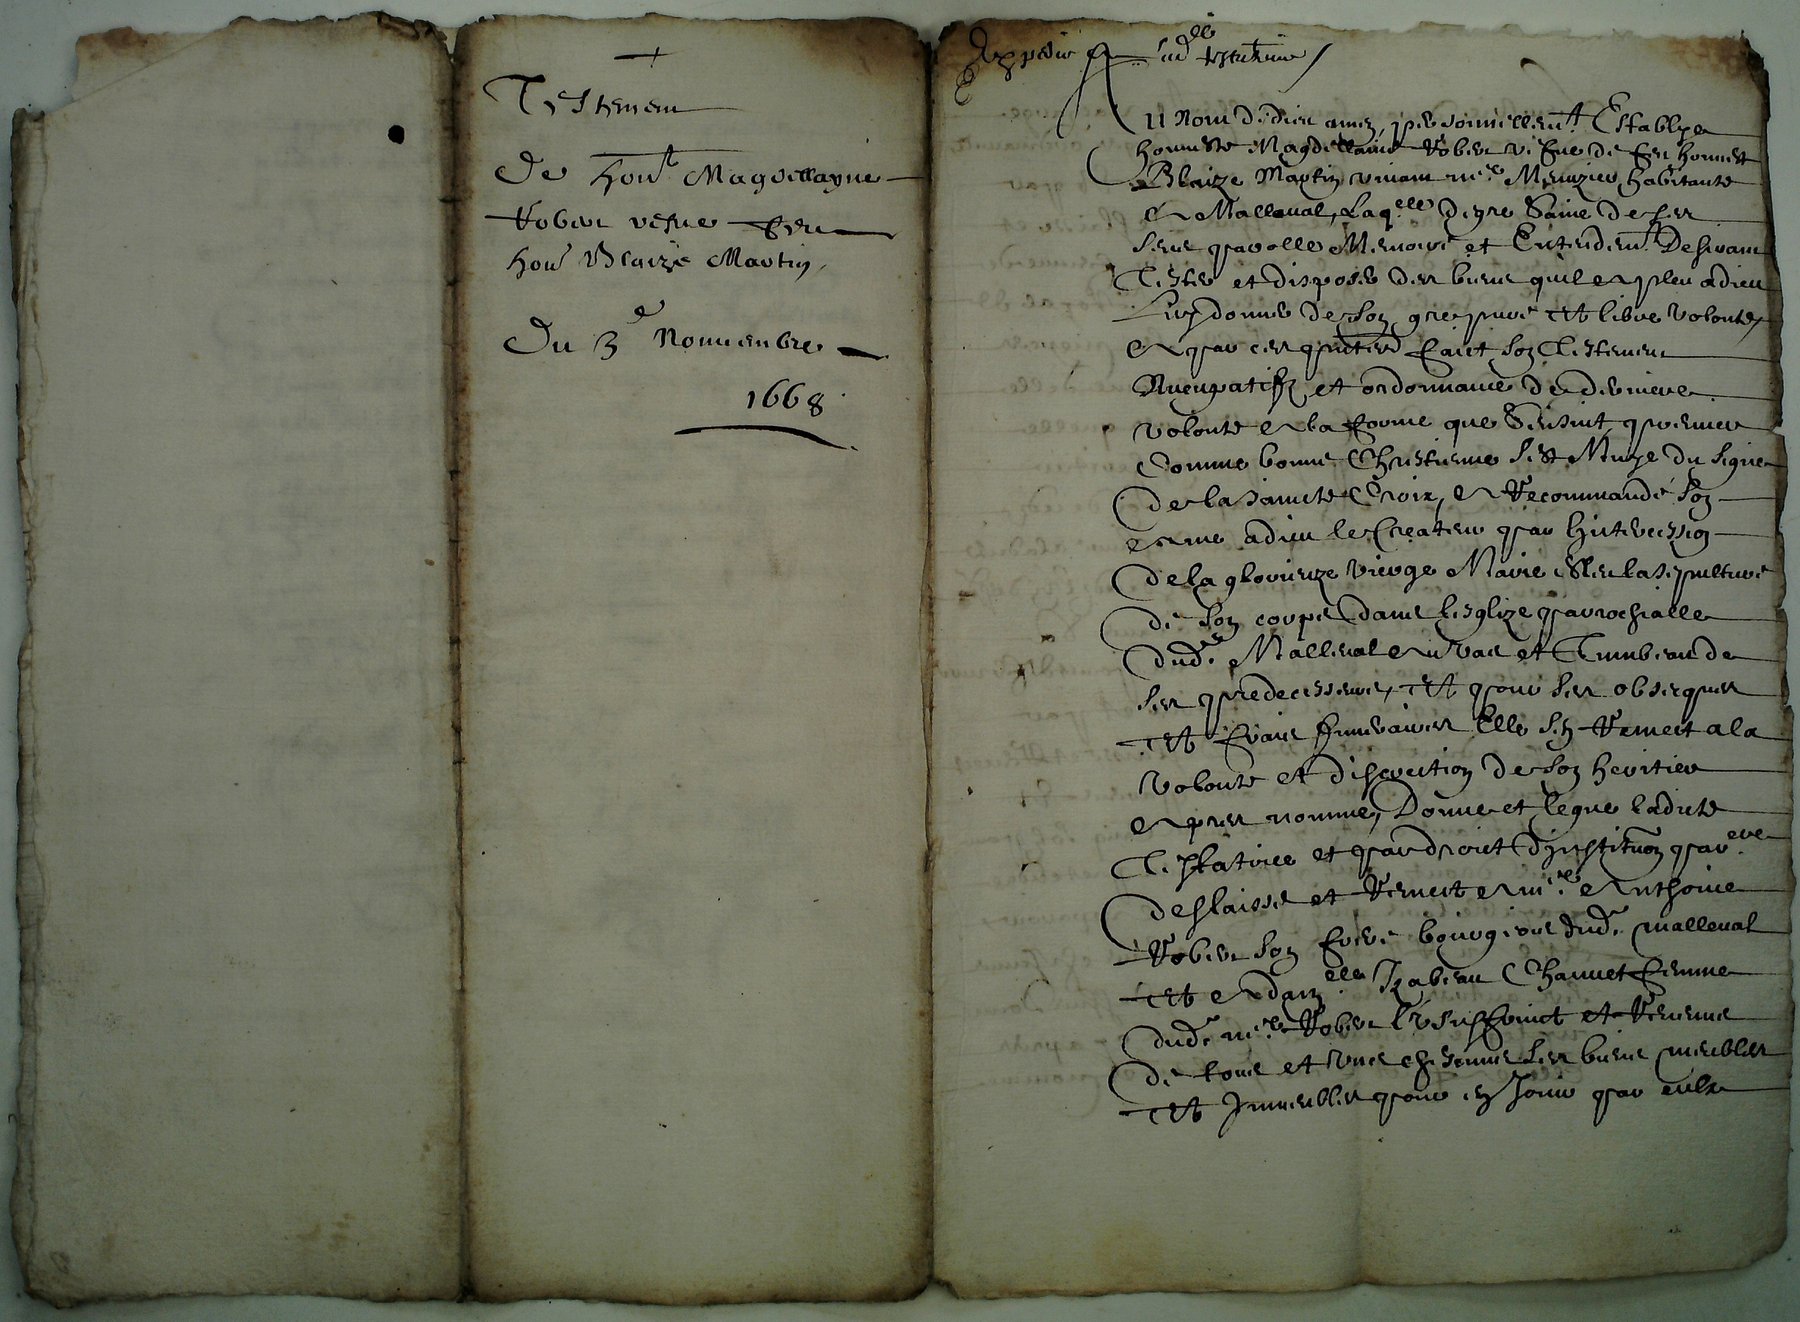 Testement
De hon.t Magdellayne
Robert vefve feu
hon.t Blaize Martin,
Du 3e Novembre
1668
Expedié a lad.te testatrice
Au Nom de dieu amen, personnellem.t Establye
honneste Magdellaine Robert vefve de feu honnest
Blaize Martin vivant m.e Menuzier, habitante
a Malleval, Laq.elle de gre Saine de ses
sens parolle Memoire et Entendem.t Desirant
Tester et disposer des biens quil a pleu a dieu
Luy donner de son gre pure et libre volonte,
a par ces pntes faict son Testement
Nuncupatif et ordonnance de derniere
volonte a la forme que Sensuit, premier
Comme bonne Chrestienne sest Munye du signe
de la saincte Croix, a Recommandé son
ame a dieu le Createur par lintercession
de la glorieuze vierge Marie Esleu la sepulture
de son corps dans lesglize parrochialle
dud. Malleval au vas et Tumbeau de
ses predecesseurs, et pour ses obseques
et frais funeraires Elle sen Remect a la
volonte et discrection de son heritier
apres nomme, Donne et legue ladicte
Testatrice et par droict dinstitution par.ere
deslaisse et Remect a m.e Anthoine
Robert son frere bourgeois dud. malleval
et a dam.elle Izabeau Charvet femme
dud. m.e Robert lusuffruict et Revenus
de tous et uns chesquns ses biens meubles
et Immeubles pour en Jouir par eulx